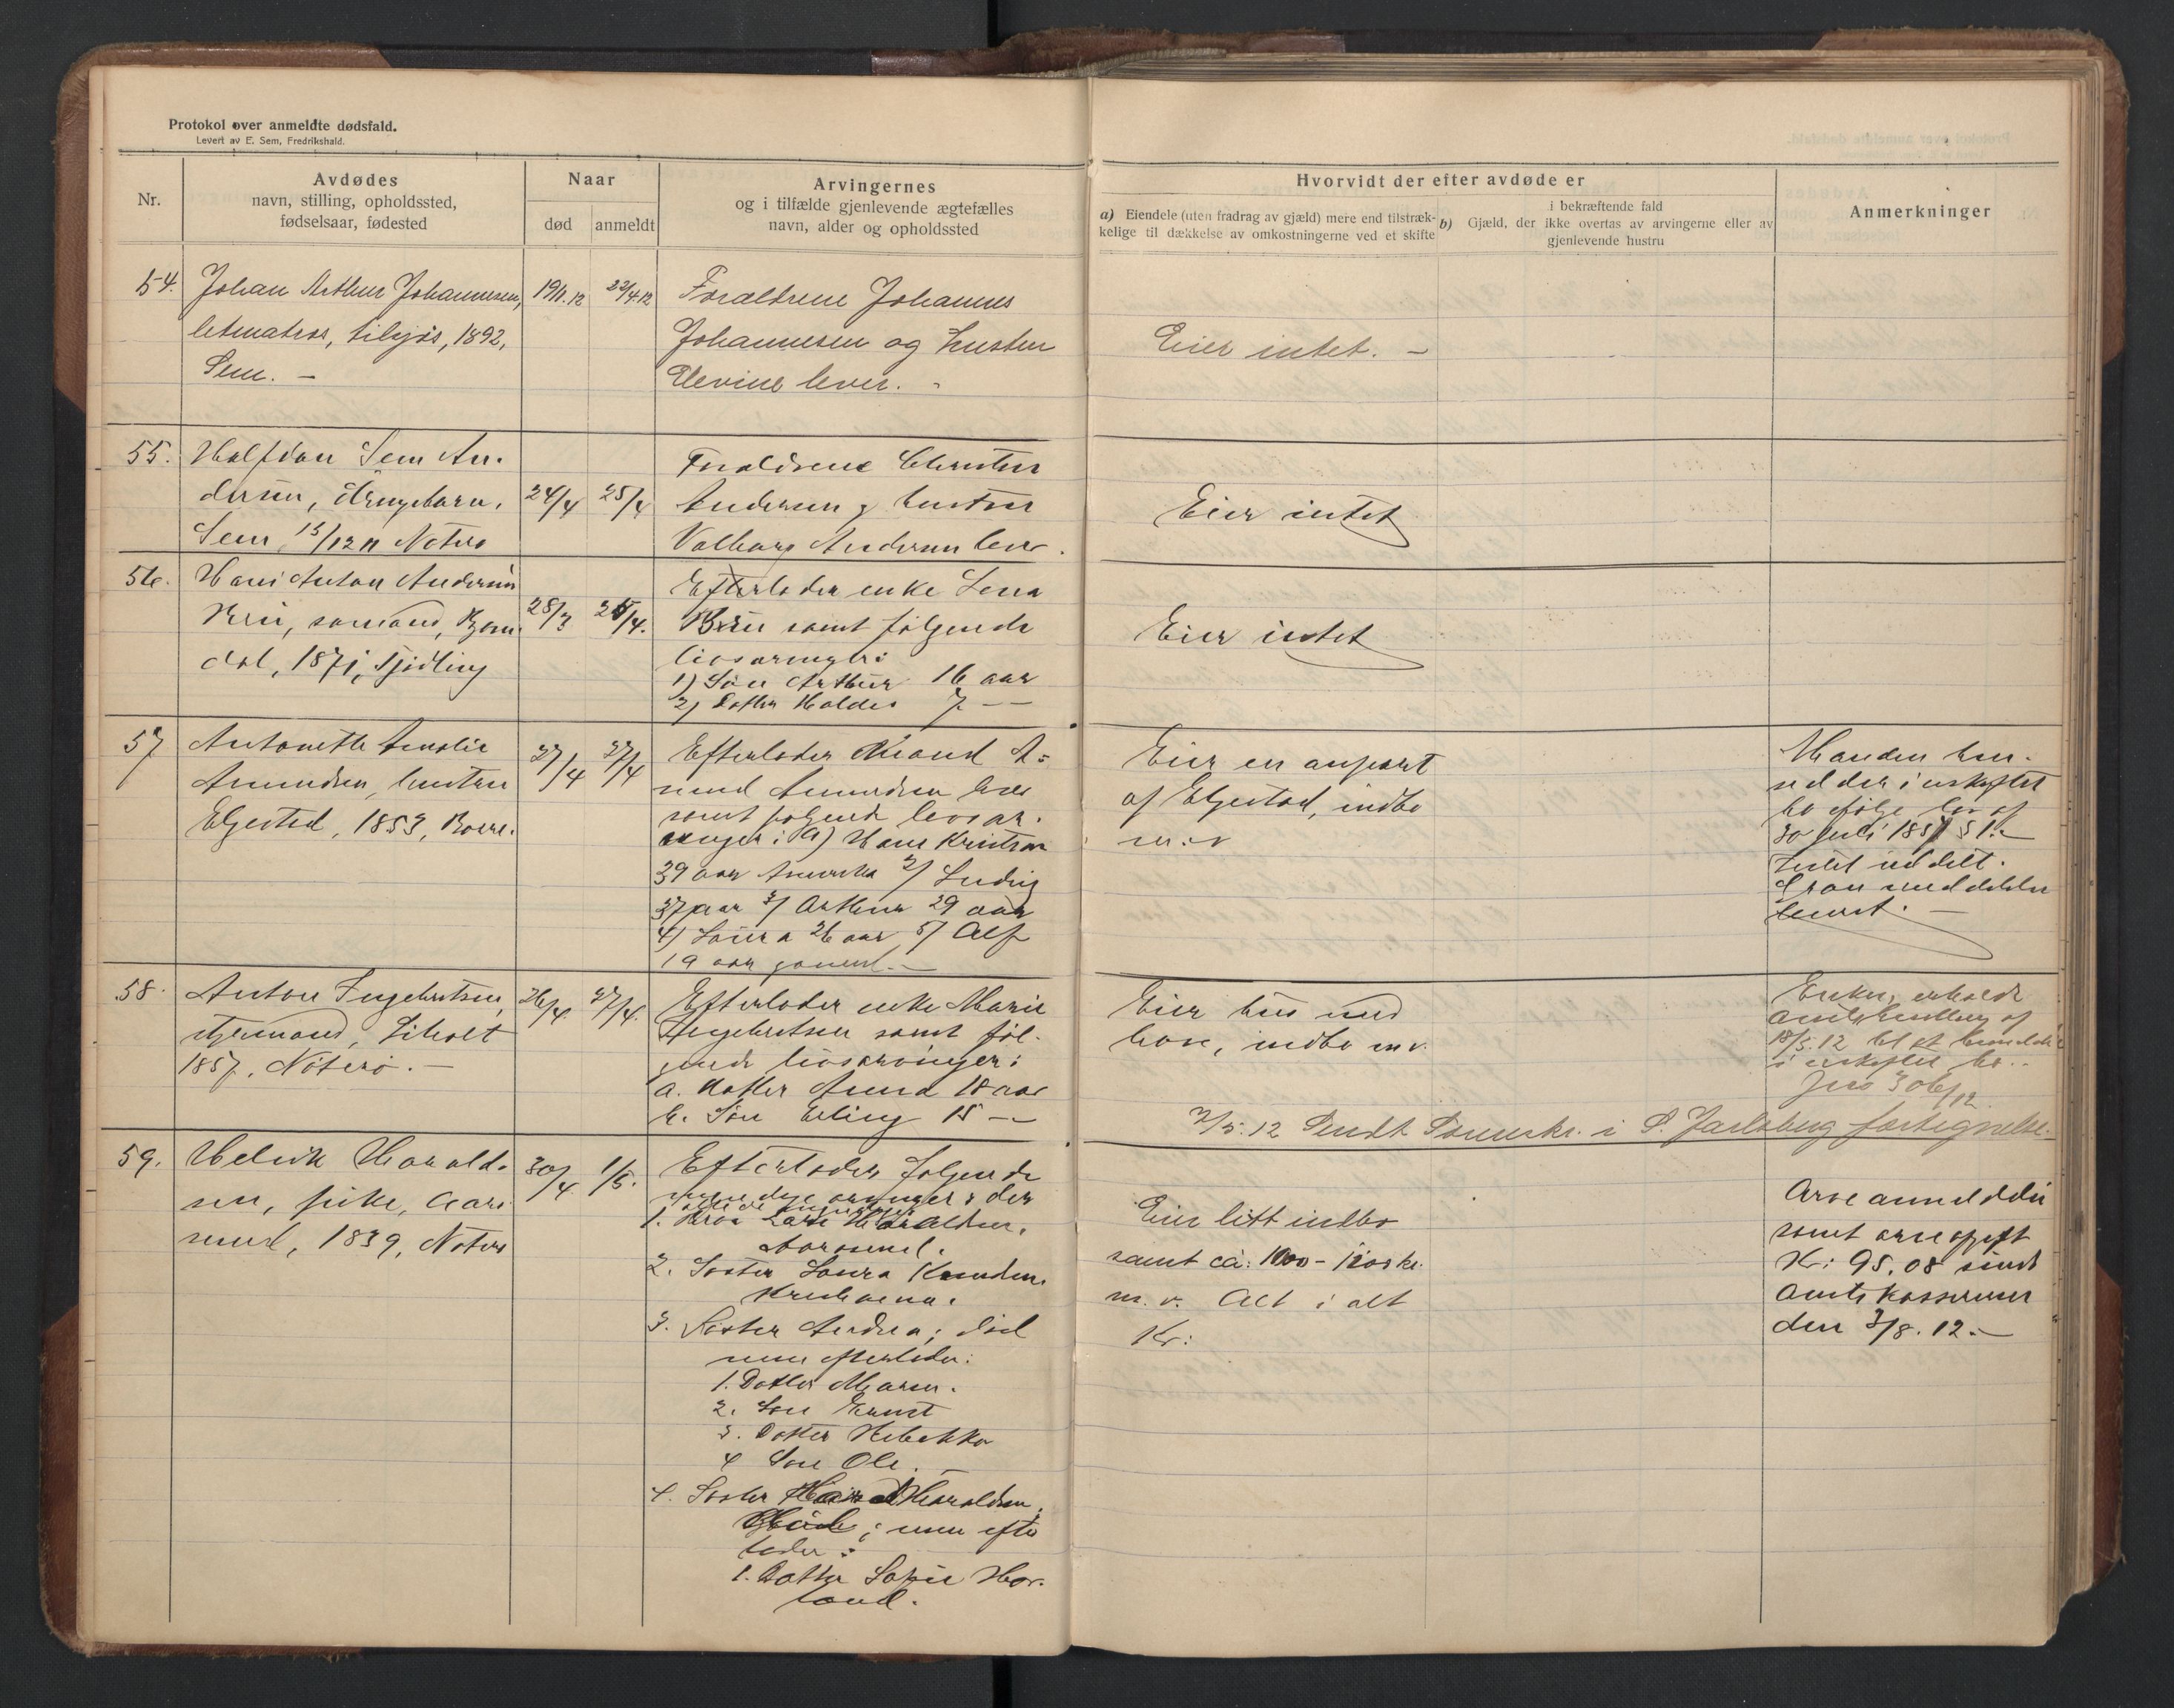 Protokol over anmeldte dødsfald.
Levert av E. Sem, Fredrikshald.
Nr.
Avdødes
navn, stilling, opholdssted,
fødselsaar, fødested
Naar
død
anmeldt
Arvingernes
og i tilfælde gjenlevende ægtefælles
navn, alder og opholdssted
Hvorvidt der efter avdøde er
a) Eiendele (uten fradrag av gjæld) mere end tilstræk-
kelige til dækkelse av omkostningerne ved et skifte
i bekræftende fald
b) Gjæld, der ikke overtas av arvingerne eller av
gjenlevende hustru
Anmerkninger
54. Johan Arthur Johannesen,
letmatros, tilsjøs, 1892,
Sem. –
23/4 12
Forældrene Johannes
Johannesen og hustru
Elevine lever. –
Eier intet. –
55. Halfdan Sem An-
dersen, drengebarn,
Sem, 13/12 11 Nøterø
24/4
25/4
Forældrene Christen
Andersen og hustru
Valborg Andersen lever.
Eier intet
56. Hans Anton Andersen
Brü, sømand,
dal, 1871,
28/3
25/4.
Efterlader enke Lena
Brü samt følgende
livsarvinger:
1) Søn Arthur 16 aar
2) Datter Haldis 7 – –
Eier intet
57 Antonette Amalie
Amundsen, hustru
Elgestad, 1853, Borre.
27/4
27/4
Efterlader Mand A-
mund Amundsen
samt følgende livsar-
vinger: a) Hans Kristian
39 aar Amerika 2/ Ludvig
37 aar 3/ Arthur 29 aar
4) Laura 26 aar 5/ Alf
19 aar
Eier en anpart
af Elgestad, indbo
m.v
Manden hen-
sidder i uskiftet
bo ifølge lov af
30 juli 1851 § 1.
58. Anton Ingebretsen,
styrmand,
1857, Nøterø. –
26/4
27/4.
Efterlader enke Marie
Ingebretsen samt føl-
gende livsarvinger:
a. Datter Anna 18 aar
b. Søn Erling 15 –
Eier hus med
have, indbo m v.
Enken erholdt
18/5.12
i uskiftet bo.
Jno 306/12
2/5.12 Sendt Sorenskr. i S. Jarlsberg fortegnelse.
59. Helvik Harald-
sen, pike, Aarø-
sund, 1839, Nøterø
30/4
1/5.
Efterlader følgende
myndige arvinger:
1. Bror Lars Haraldsen,
Aarøsund.
2. Søster Laura Knudsen,
Kristiania.
3. Søster Andrea; død
men efterlader:
1. Datter Maren.
2. Søn Ernst
3. Datter Rebekka
4 Søn Ole. –
4. Søster Haraldsen,
; men efter
lader:
1. Datter Sofie Hav-
land.
Eier litt indbo
samt ca: 1000 – 1200 kr.
m. v. Alt i alt
Kr:
Arveanmeldelse
samt arveavgift
Kr: 95.08 sendt
Amtskassereren
den 3/8. 12. –